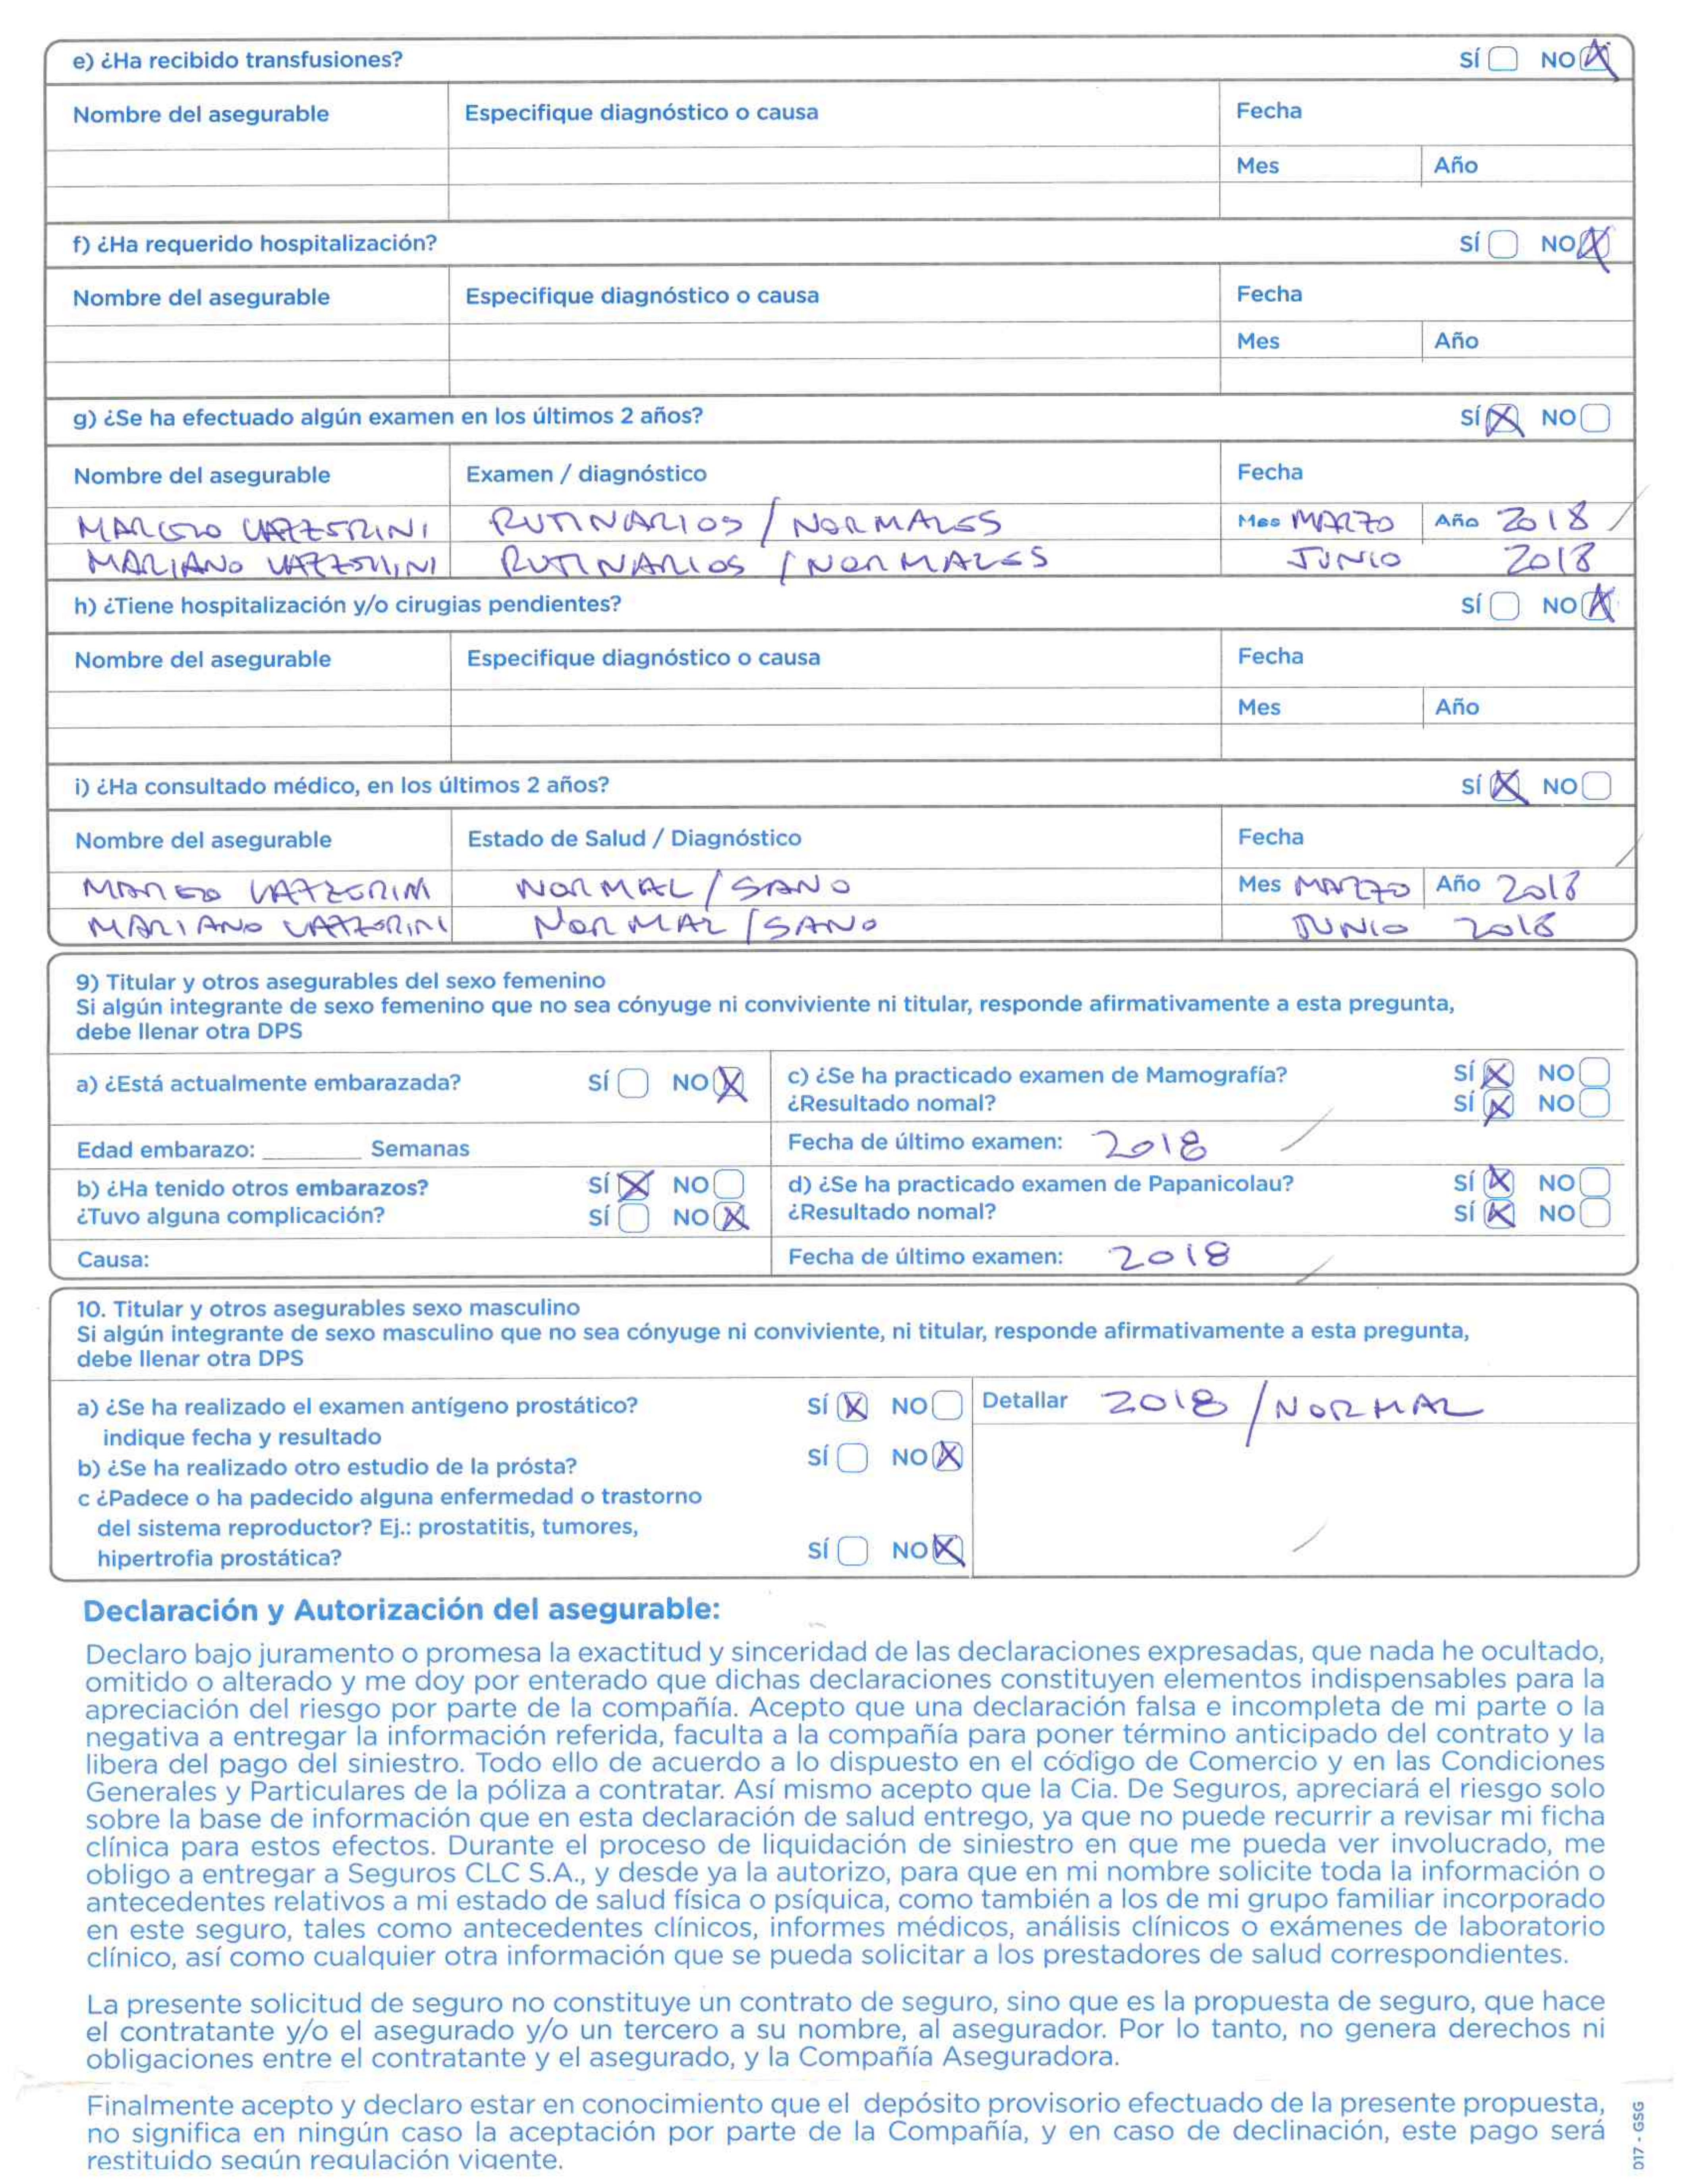 e) ¿Ha recibido transfusiones? SÍ NO
Nombre del asegurable Especifique diagnóstico o causa Fecha
Mes Año
f) ¿Ha requerido hospitalización? SÍ NO
Nombre del asegurable Especifique diagnóstico o causa Fecha
Mes Año
g) ¿Se ha efectuado algún examen en los últimos 2 años? SÍ NO
Nombre del asegurable Examen / diagnóstico Fecha
RUTINARIOS / NORMALES Mes MARZO Año 2018
MARIANO RUTINARIOS / NORMALES JUNIO 2018
h) ¿Tiene hospitalización y/o cirugias pendientes? SÍ NO
Nombre del asegurable Especifique diagnóstico o causa Fecha
Mes Año
i) ¿Ha consultado médico, en los últimos 2 años? SÍ NO
Nombre del asegurable Estado de Salud / Diagnóstico Fecha
NORMAL / SANO Mes MARZO Año 2018
MARIANO NORMAL / SANO JUNIO 2018
9) Titular y otros asegurables del sexo femenino
Si algún integrante de sexo femenino que no sea cónyuge ni conviviente ni titular, responde afirmativamente a esta pregunta,
debe llenar otra DPS
a) ¿Está actualmente embarazada? SÍ NO
Edad embarazo: ______ Semanas
b) ¿Ha tenido otros embarazos? SÍ NO
¿Tuvo alguna complicación? SÍ NO
Causa:
c) ¿Se ha practicado examen de Mamografía? SÍ NO
¿Resultado nomal? SÍ NO
Fecha de último examen: 2018
d) ¿Se ha practicado examen de Papanicolau? SÍ NO
¿Resultado nomal? SÍ NO
Fecha de último examen: 2018
10. Titular y otros asegurables sexo masculino
Si algún integrante de sexo masculino que no sea cónyuge ni conviviente, ni titular, responde afirmativamente a esta pregunta,
debe llenar otra DPS
a) ¿Se ha realizado el examen antígeno prostático? SÍ NO Detallar 2018 / NORMAL
indique fecha y resultado
b) ¿Se ha realizado otro estudio de la prósta? SÍ NO
c ¿Padece o ha padecido alguna enfermedad o trastorno
del sistema reproductor? Ej.: prostatitis, tumores,
hipertrofia prostática? SÍ NO
Declaración y Autorización del asegurable:
Declaro bajo juramento o promesa la exactitud y sinceridad de las declaraciones expresadas, que nada he ocultado,
omitido o alterado y me doy por enterado que dichas declaraciones constituyen elementos indispensables para la
apreciación del riesgo por parte de la compañía. Acepto que una declaración falsa e incompleta de mi parte o la
negativa a entregar la información referida, faculta a la compañía para poner término anticipado del contrato y la
libera del pago del siniestro. Todo ello de acuerdo a lo dispuesto en el código de Comercio y en las Condiciones
Generales y Particulares de la póliza a contratar. Así mismo acepto que la Cia. De Seguros, apreciará el riesgo solo
sobre la base de información que en esta declaración de salud entrego, ya que no puede recurrir a revisar mi ficha
clínica para estos efectos. Durante el proceso de liquidación de siniestro en que me pueda ver involucrado, me
obligo a entregar a Seguros CLC S.A., y desde ya la autorizo, para que en mi nombre solicite toda la información o
antecedentes relativos a mi estado de salud física o psíquica, como también a los de mi grupo familiar incorporado
en este seguro, tales como antecedentes clínicos, informes médicos, análisis clínicos o exámenes de laboratorio
clínico, así como cualquier otra información que se pueda solicitar a los prestadores de salud correspondientes.
La presente solicitud de seguro no constituye un contrato de seguro, sino que es la propuesta de seguro, que hace
el contratante y/o el asegurado y/o un tercero a su nombre, al asegurador. Por lo tanto, no genera derechos ni
obligaciones entre el contratante y el asegurado, y la Compañía Aseguradora.
Finalmente acepto y declaro estar en conocimiento que el depósito provisorio efectuado de la presente propuesta,
no significa en ningún caso la aceptación por parte de la Compañía, y en caso de declinación, este pago será
restituido según regulación vigente.
017 - GSG